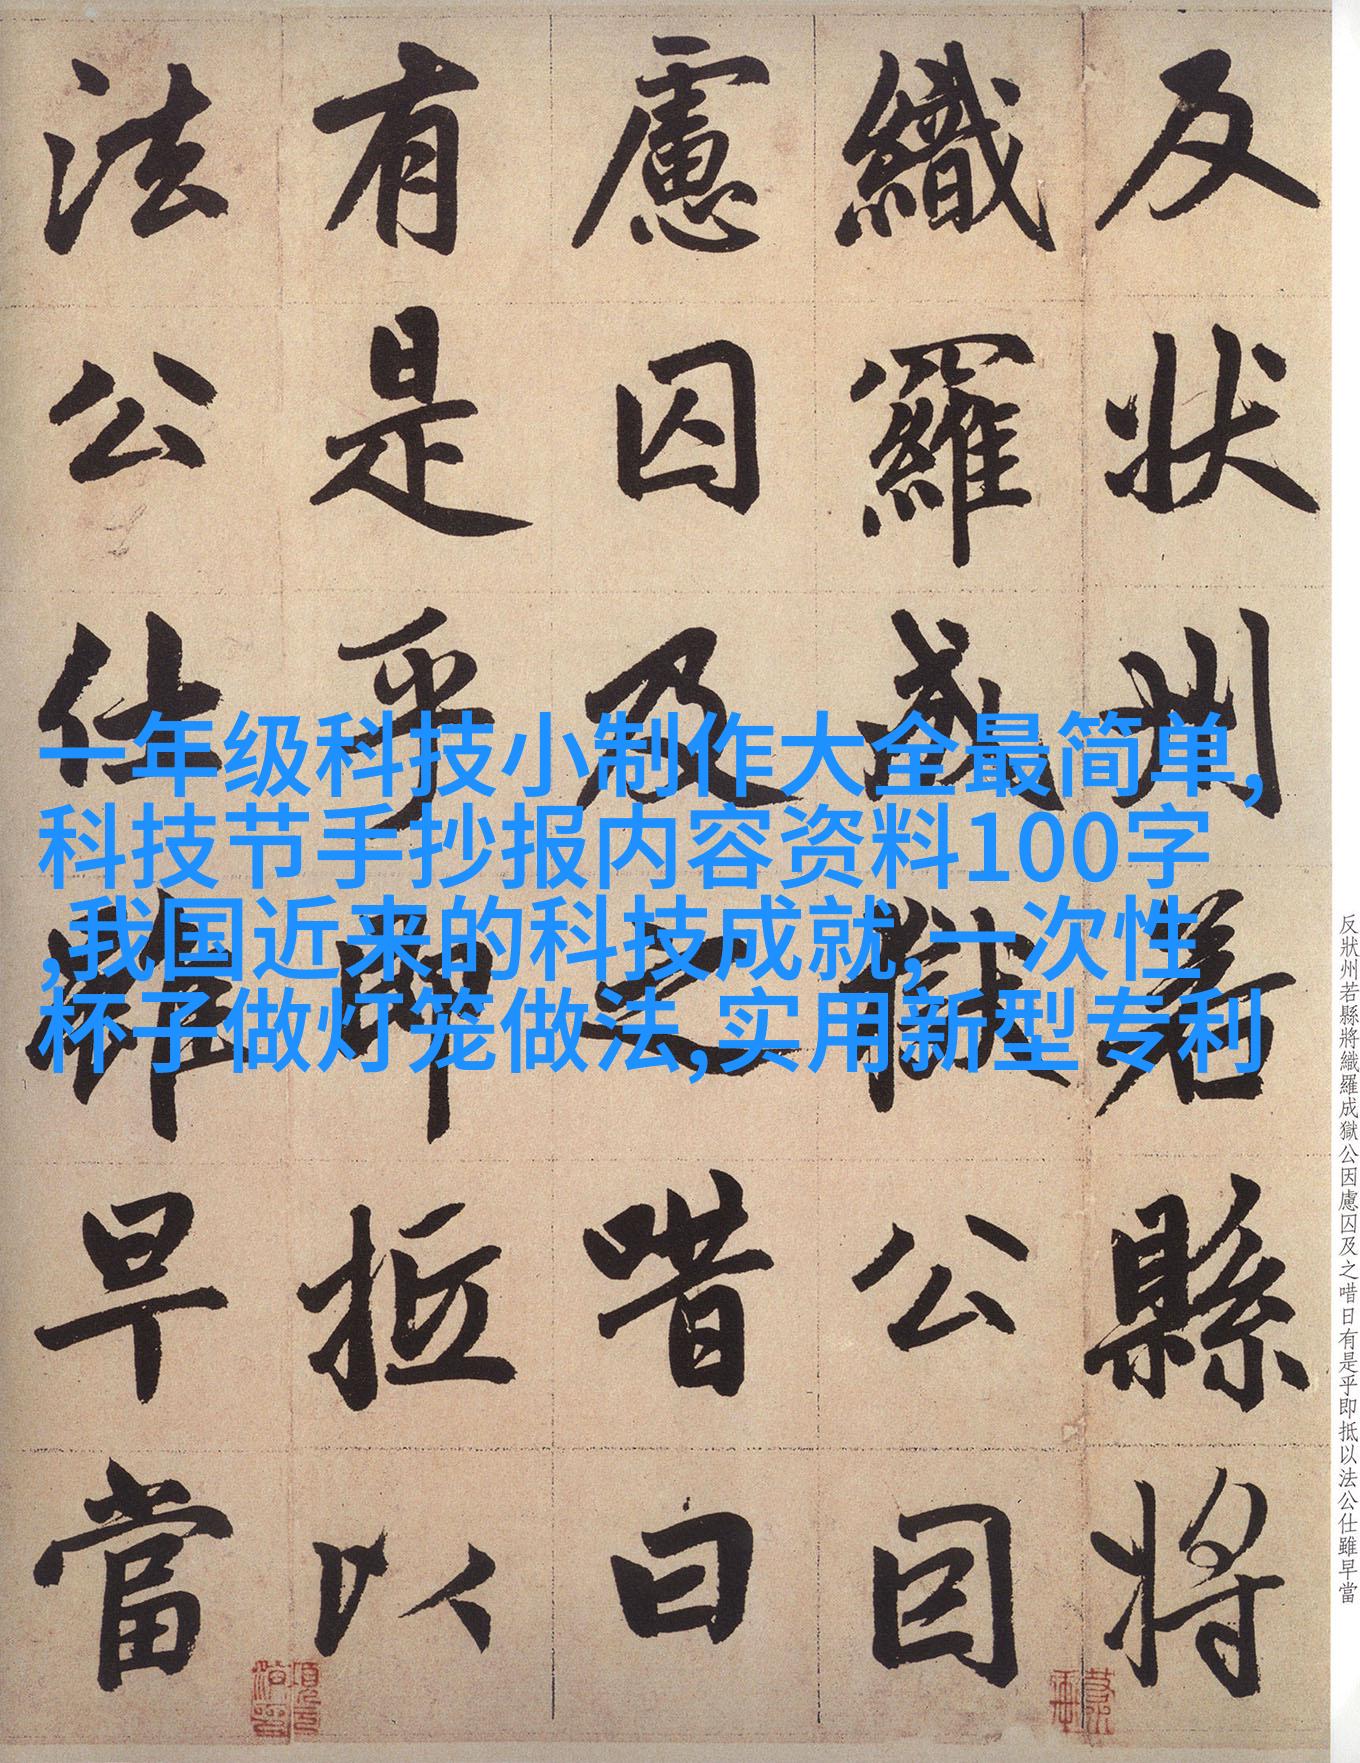 反狀州若縣將
織羅成獄公因
慮囚及之唶曰
有是乎即抵以
法公仕雖早當
一年级科技小制作大全最简单,
科技节手抄报内容资料100字
,我国近来的科技成就,一次性
杯子做灯笼做法,实用新型专利
反狀州若縣將織羅成獄公因慮囚及之唶日有是乎即抵以法公仕雖早當